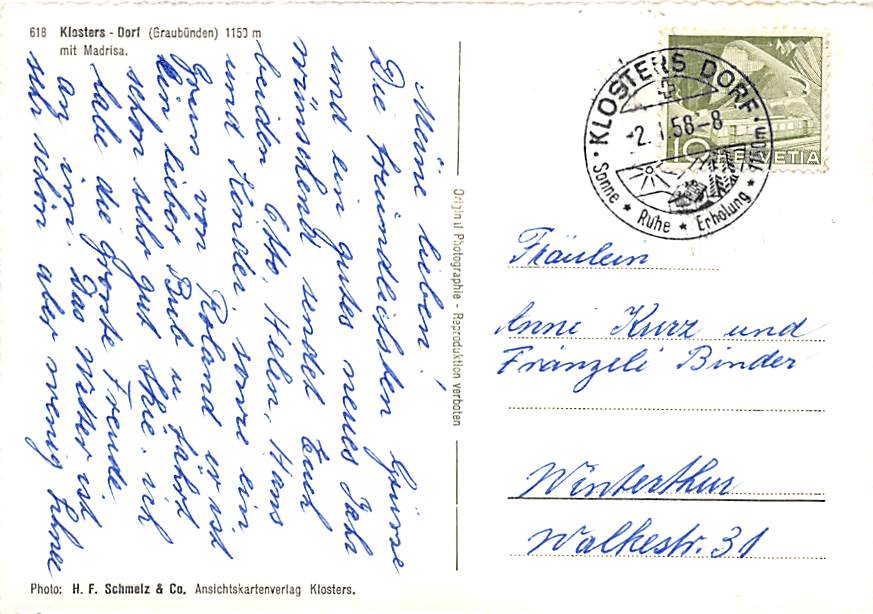 618 Klosters - Dorf (Graubünden) 1150 m
mit Madrisa.
Meine lieben!
Die freundlichsten Grüsse
und ein gutes neues Jahr
wünschend, sendet Euch
beiden Otto, Helen, Hans
und Kinder, sowie ein
Gruss von Roland er ist
ein lieber Bub u fährt
schon sehr gut Skie. ich
habe die grösste Freude
an im. Das Wetter ist
sehr schön aber wenig Schnee
Original Photographie - Reproduktion verboten
KLOSTERS DORF
-2.1.58-8
1150m
Sonne ★ Ruhe ★ Erholung ★
10 HELVETIA
Fräulein
Anni Kurz und
Fränzeli Binder
Winterthur
Walkestr. 31
Photo: H. F. Schmelz & Co. Ansichtskartenverlag Klosters.